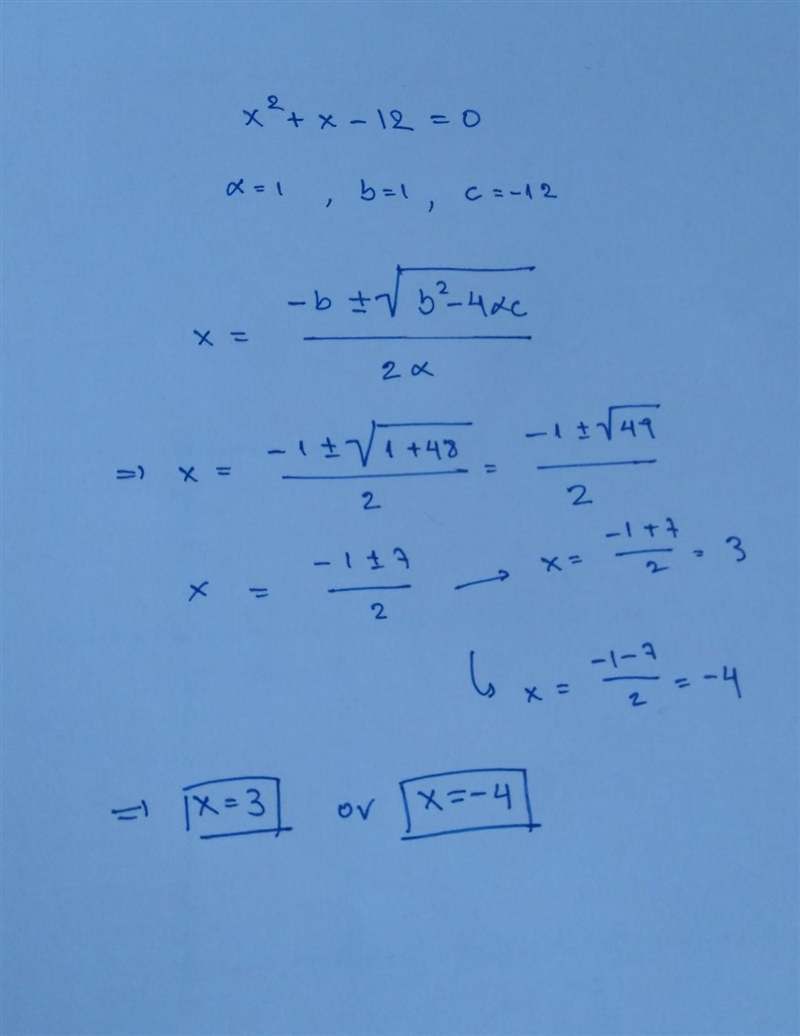 x² + x - 12 = 0
α = 1 , b = 1 , c = -12
x = (-b ± √(b² - 4αc)) / (2α)
⇒ x = (-1 ± √(1 + 48)) / 2 = (-1 ± √49) / 2
x = (-1 ± 7) / 2 → x = (-1 + 7) / 2 = 3
↳ x = (-1 - 7) / 2 = -4
⇒ x = 3 or x = -4